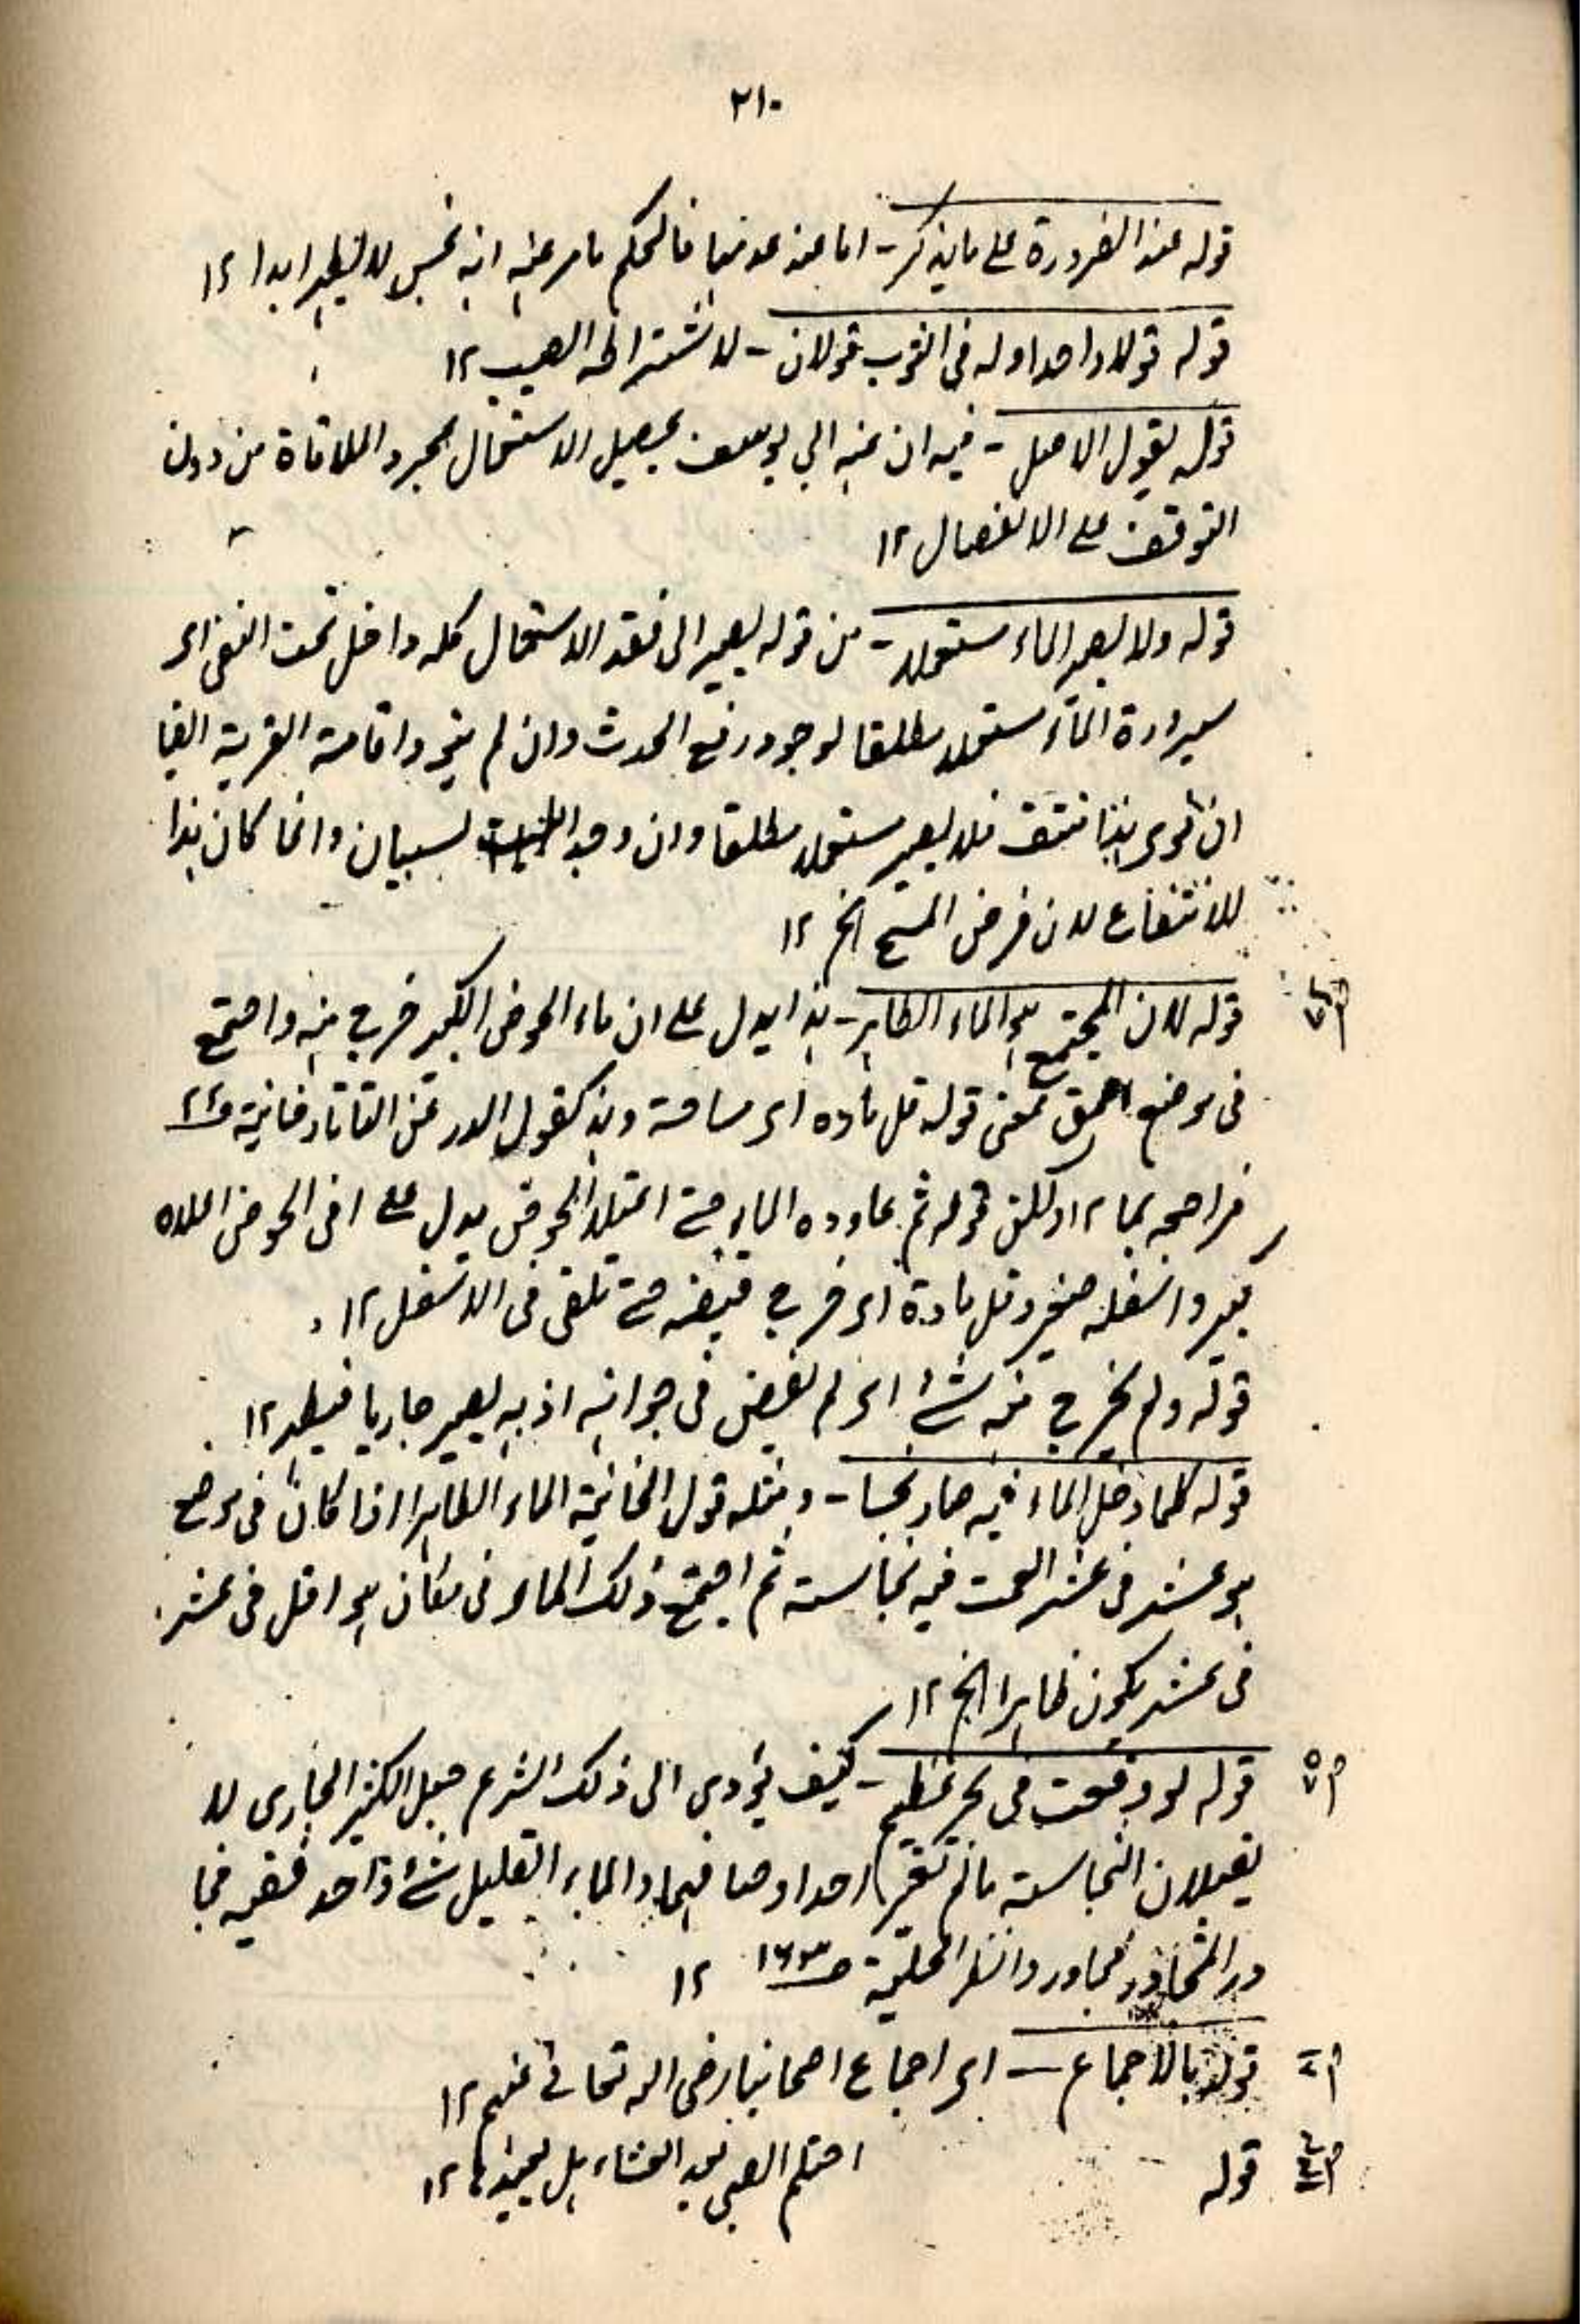 ٢١٠
قوله عند الضرورة على ما يذكر - اما عند عدمها فالحكم ما مر عنه انه نجس لا يطهر ابدا ١٢
قوله قولا واحدا وله في الثوب قولان - لاشتراط الصب ١٢
قوله يقول الاصل - فيه ان عند ابي يوسف يحصل الاستعمال بمجرد الملاقاة من دون
التوقف على الانفصال ١٢
قوله ولا يصير الماء مستعملا - من قوله يصير الى فقد الاستعمال كله داخل تحت النفي اى
صيرورة الماء مستعملا مطلقا لوجود رفع الحدث وان لم ينو واقامة القربة ايضا
ان نوى هذا منتف فلا يصير مستعملا مطلقا وان وجد لسببان وانما كان هذا
للانتفاع لان فرض المسح الخ ١٢
قوله لان المجتمع هو الماء الطاهر - هذا يدل على ان ماء الحوض الكبير خرج منه واجتمع
فى موضع اعمق فمعنى قوله قل ماءه اى مساحة وهذ كقول الدر عن التاتارخانية
فراجعه بما ١٢ ولكن قوله ثم عاوده الماء حتى امتلأ الحوض يدل على ان الحوض اعلاه
كبير واسفله صغير وقل ماءه اى خرج قبضه حتى تلقى فى الاسفل ١٢
قوله ولم يخرج منه شئ اى لم يفض فى جوانبه اذ به يصير جاريا فيطهر ١٢
قوله كلما دخل الماء فيه صار نجسا - ومثله قول الخانية الماء الطاهر اذا كان فى موضع
هو عشر فى عشر وقعت فيه نجاسة ثم اجتمع ذلك الماء فى مكان هو اقل فى عشر
فى عشر يكون طاهرا الخ ١٢
قوله لو وقعت فى بحر عظيم - كيف يؤدي الى ذلك الشرع جعل الكثير الجارى لا
يقبلان النجاسة ما لم تغير احد اوصافهما والماء القليل شئ واحد
مجاور وانظر الحلية ص١٦٣ ١٢
قوله بالاجماع — اى اجماع اصحابنا رضى الله تعالى عنهم ١٢
قوله احتلم الصبي بعد العشاء هل يعيدها ١٢